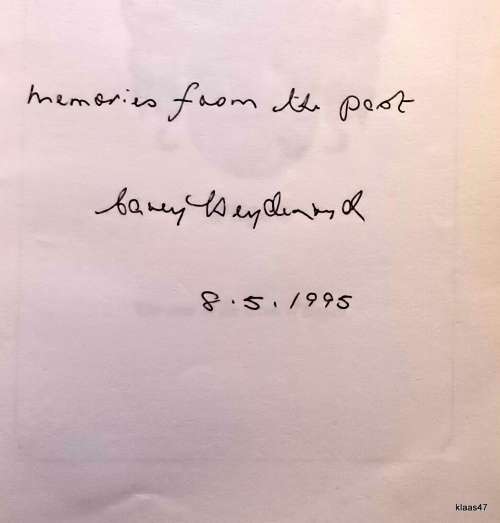 memories from the past
8.5.1995
klaas47